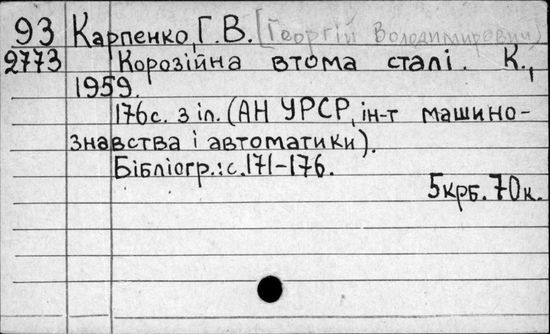 93 Карпенко, Г. В. [Георгій Володимирович]
2773 Корозійна втома сталі. К.,
1959.
176с. з іл. (АН УРСР, ін-т машино-
знавства і автоматики).
Бібліогр.: с. 171-176.
5крб. 70к.